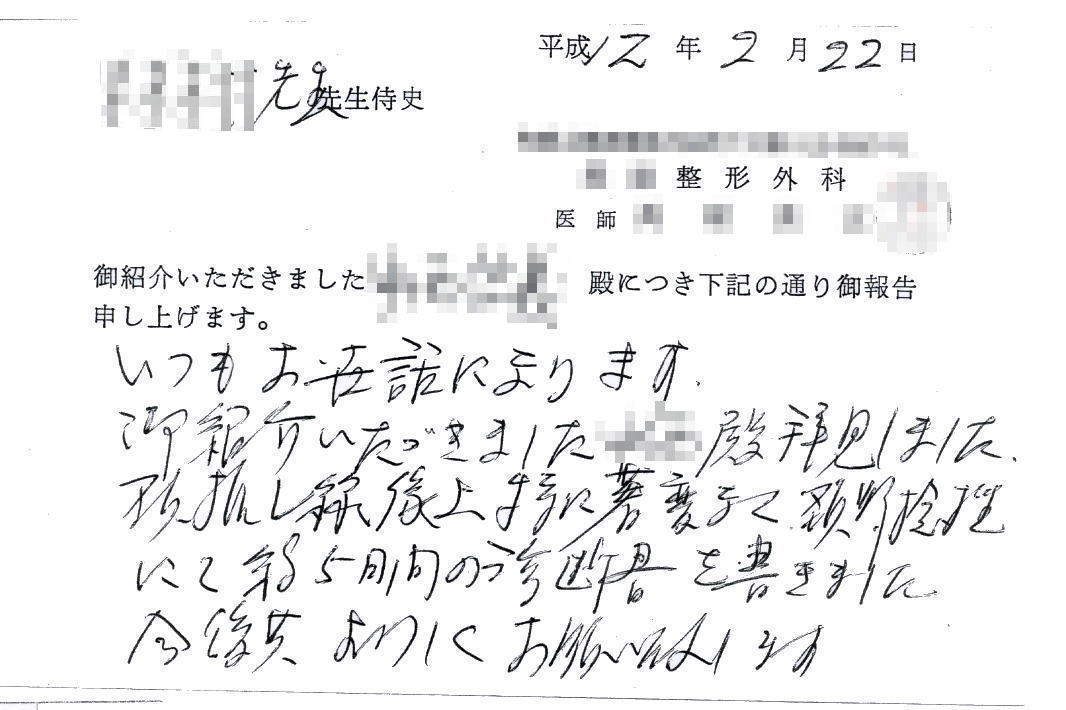 平成12年2月22日
先生先生侍史
整形外科
医師
御紹介いただきました 殿につき下記の通り御報告
申し上げます。
いつもお世話になります.
御紹介いただきました 殿拝見しました.
し 線像上特に著変なく 頚部捻挫
にて 約5日間の診断書を書きました
今後共よろしくお願い致します